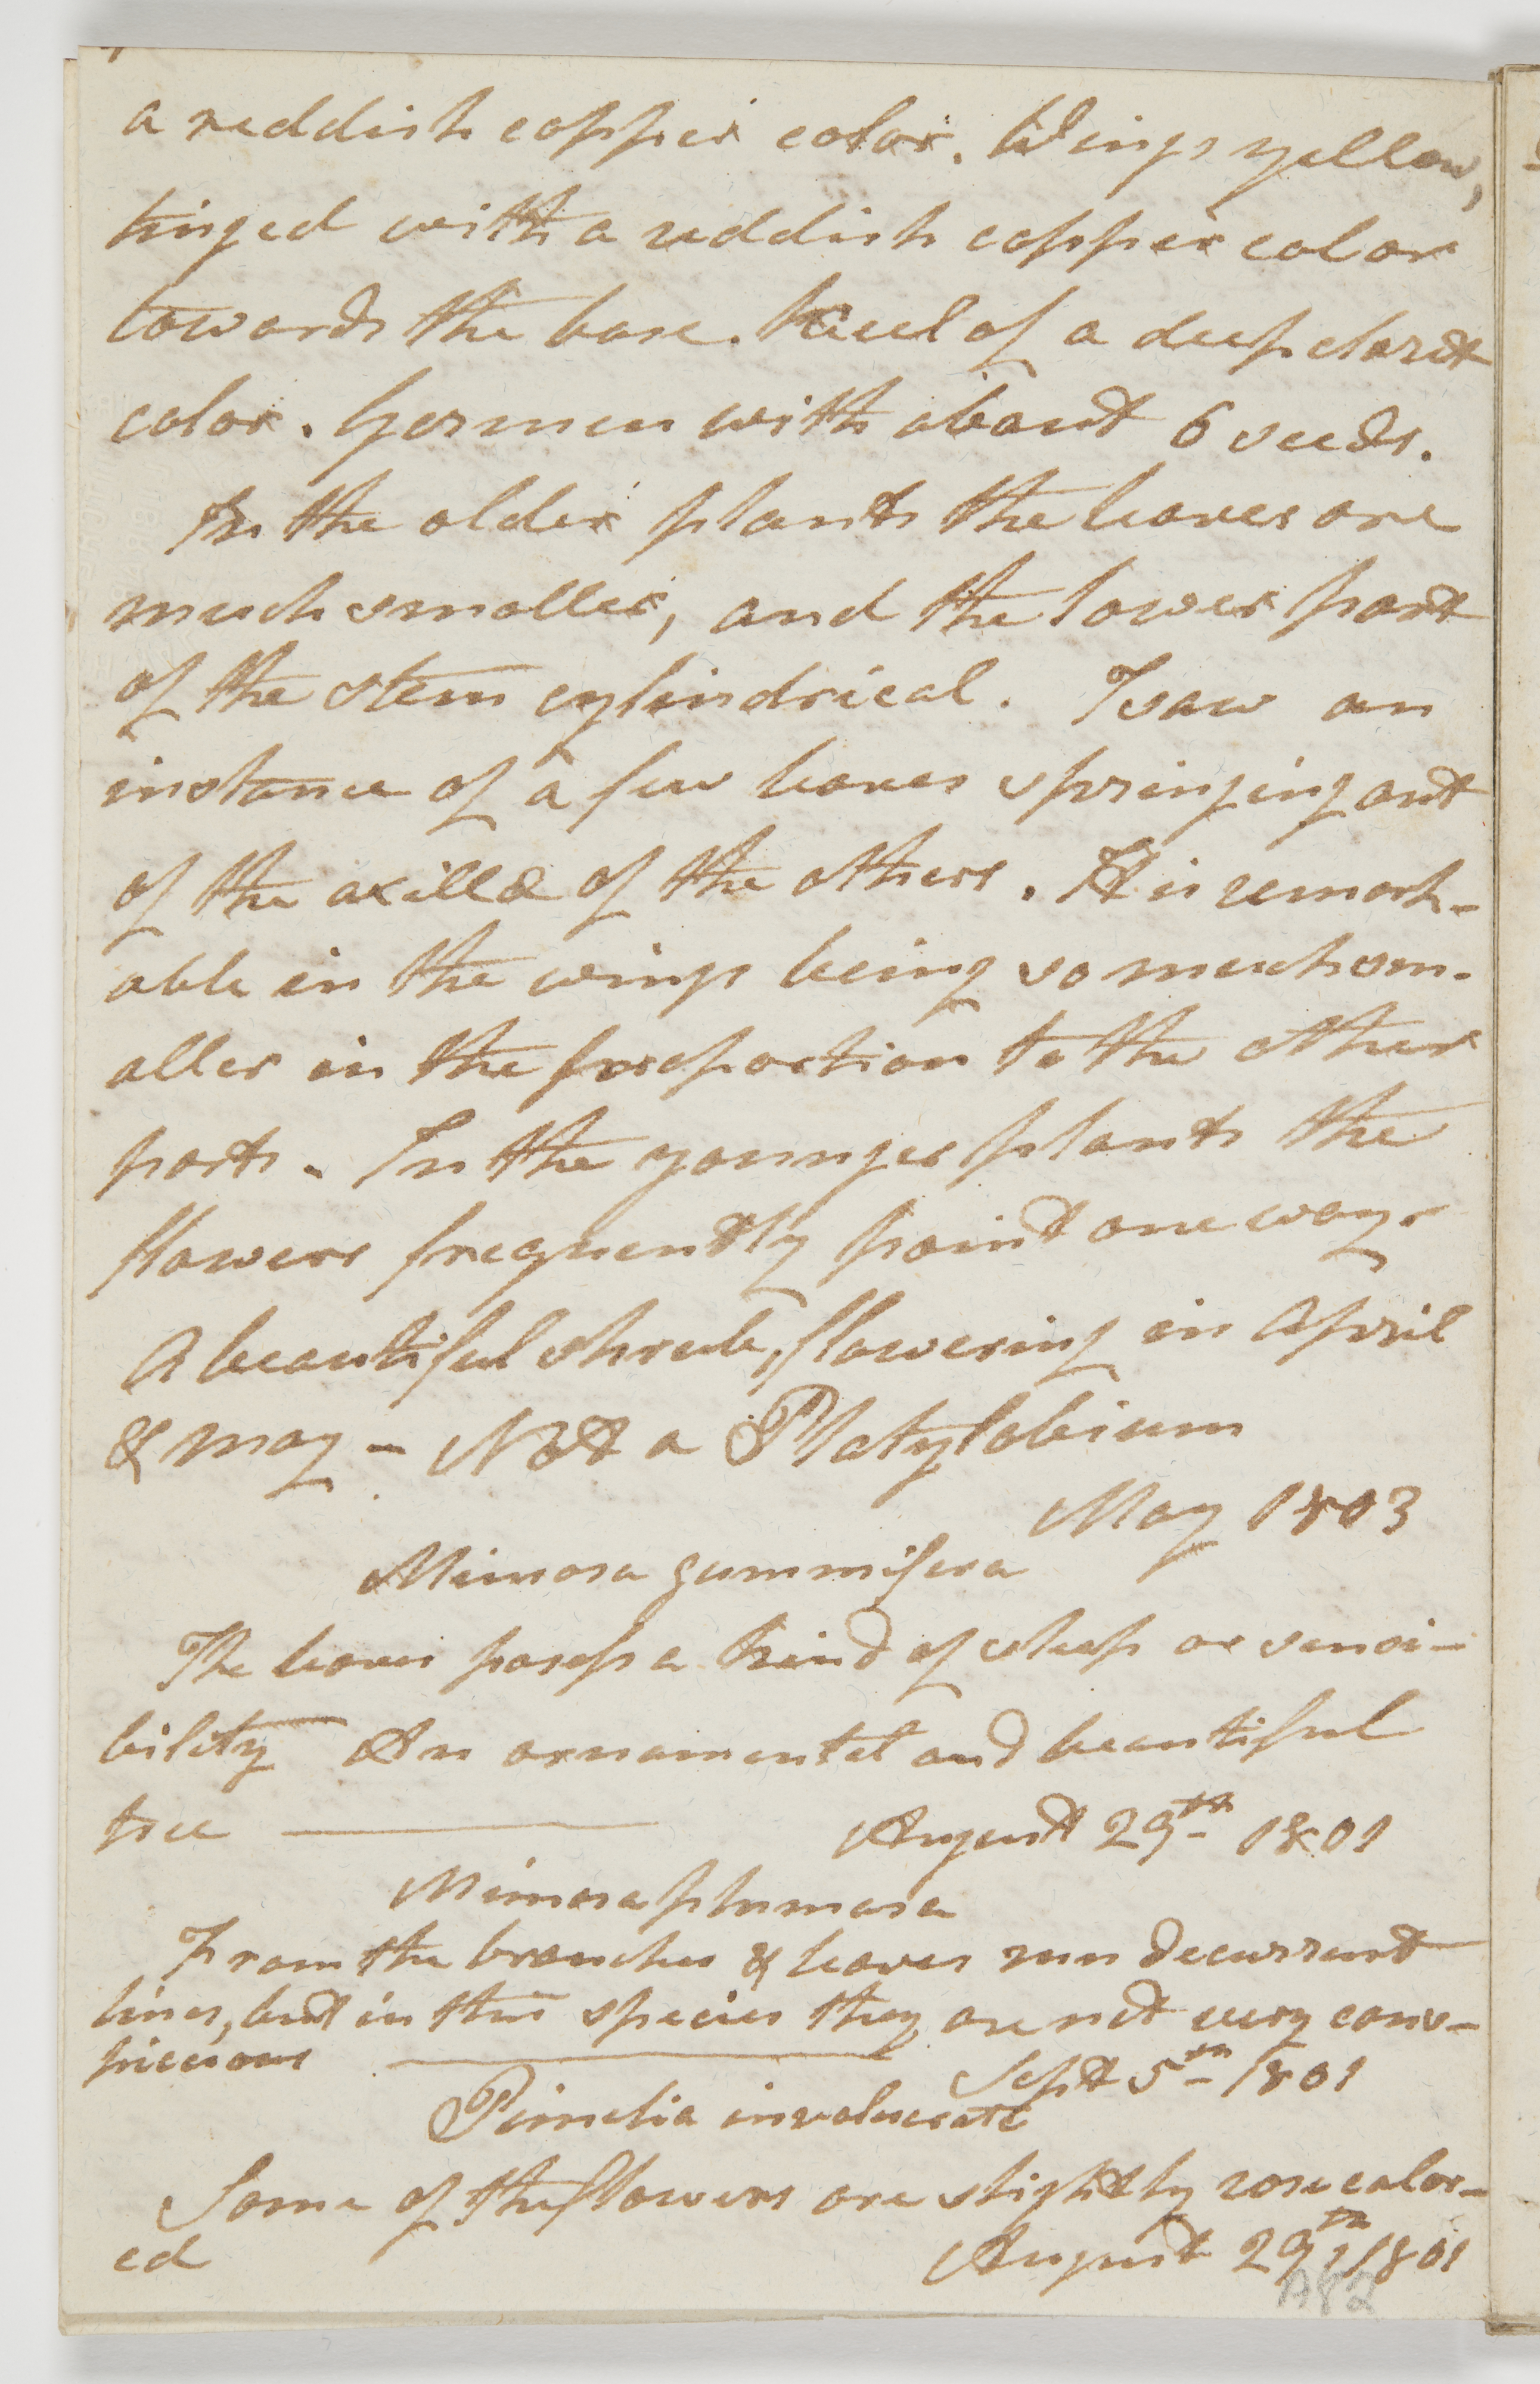 a reddish copper color. Wings yellow,
tinged with a reddish copper color
towards the base. Keel of a deep claret
color. Germen with about 6 seeds.
In the older plants the leaves are
much smaller, and the lower part
of the stem cylindrical. I saw an
instance of a few leaves springing out
of the axillæ of the others. It is remark-
able in the wings being so much sm-
aller in the proportion to the other
parts. In the younger plants the
flowers frequently point one way.
A beautiful shrub, flowering in April
& may - Not a Platylobium
May 1803
Mimosa gummifera
The leaves possess a kind of sleep or sensi-
bility An ornamental and beautiful
tree
August 29th 1801
Mimosa plumosa
From the branches & leaves run decurrent
lines, but in this species they are not very cons-
piccious
Sept 5th 1801
Pimelia involucrata
Some of the flowers are slightly rose color-
ed
August 29th 1801
A82